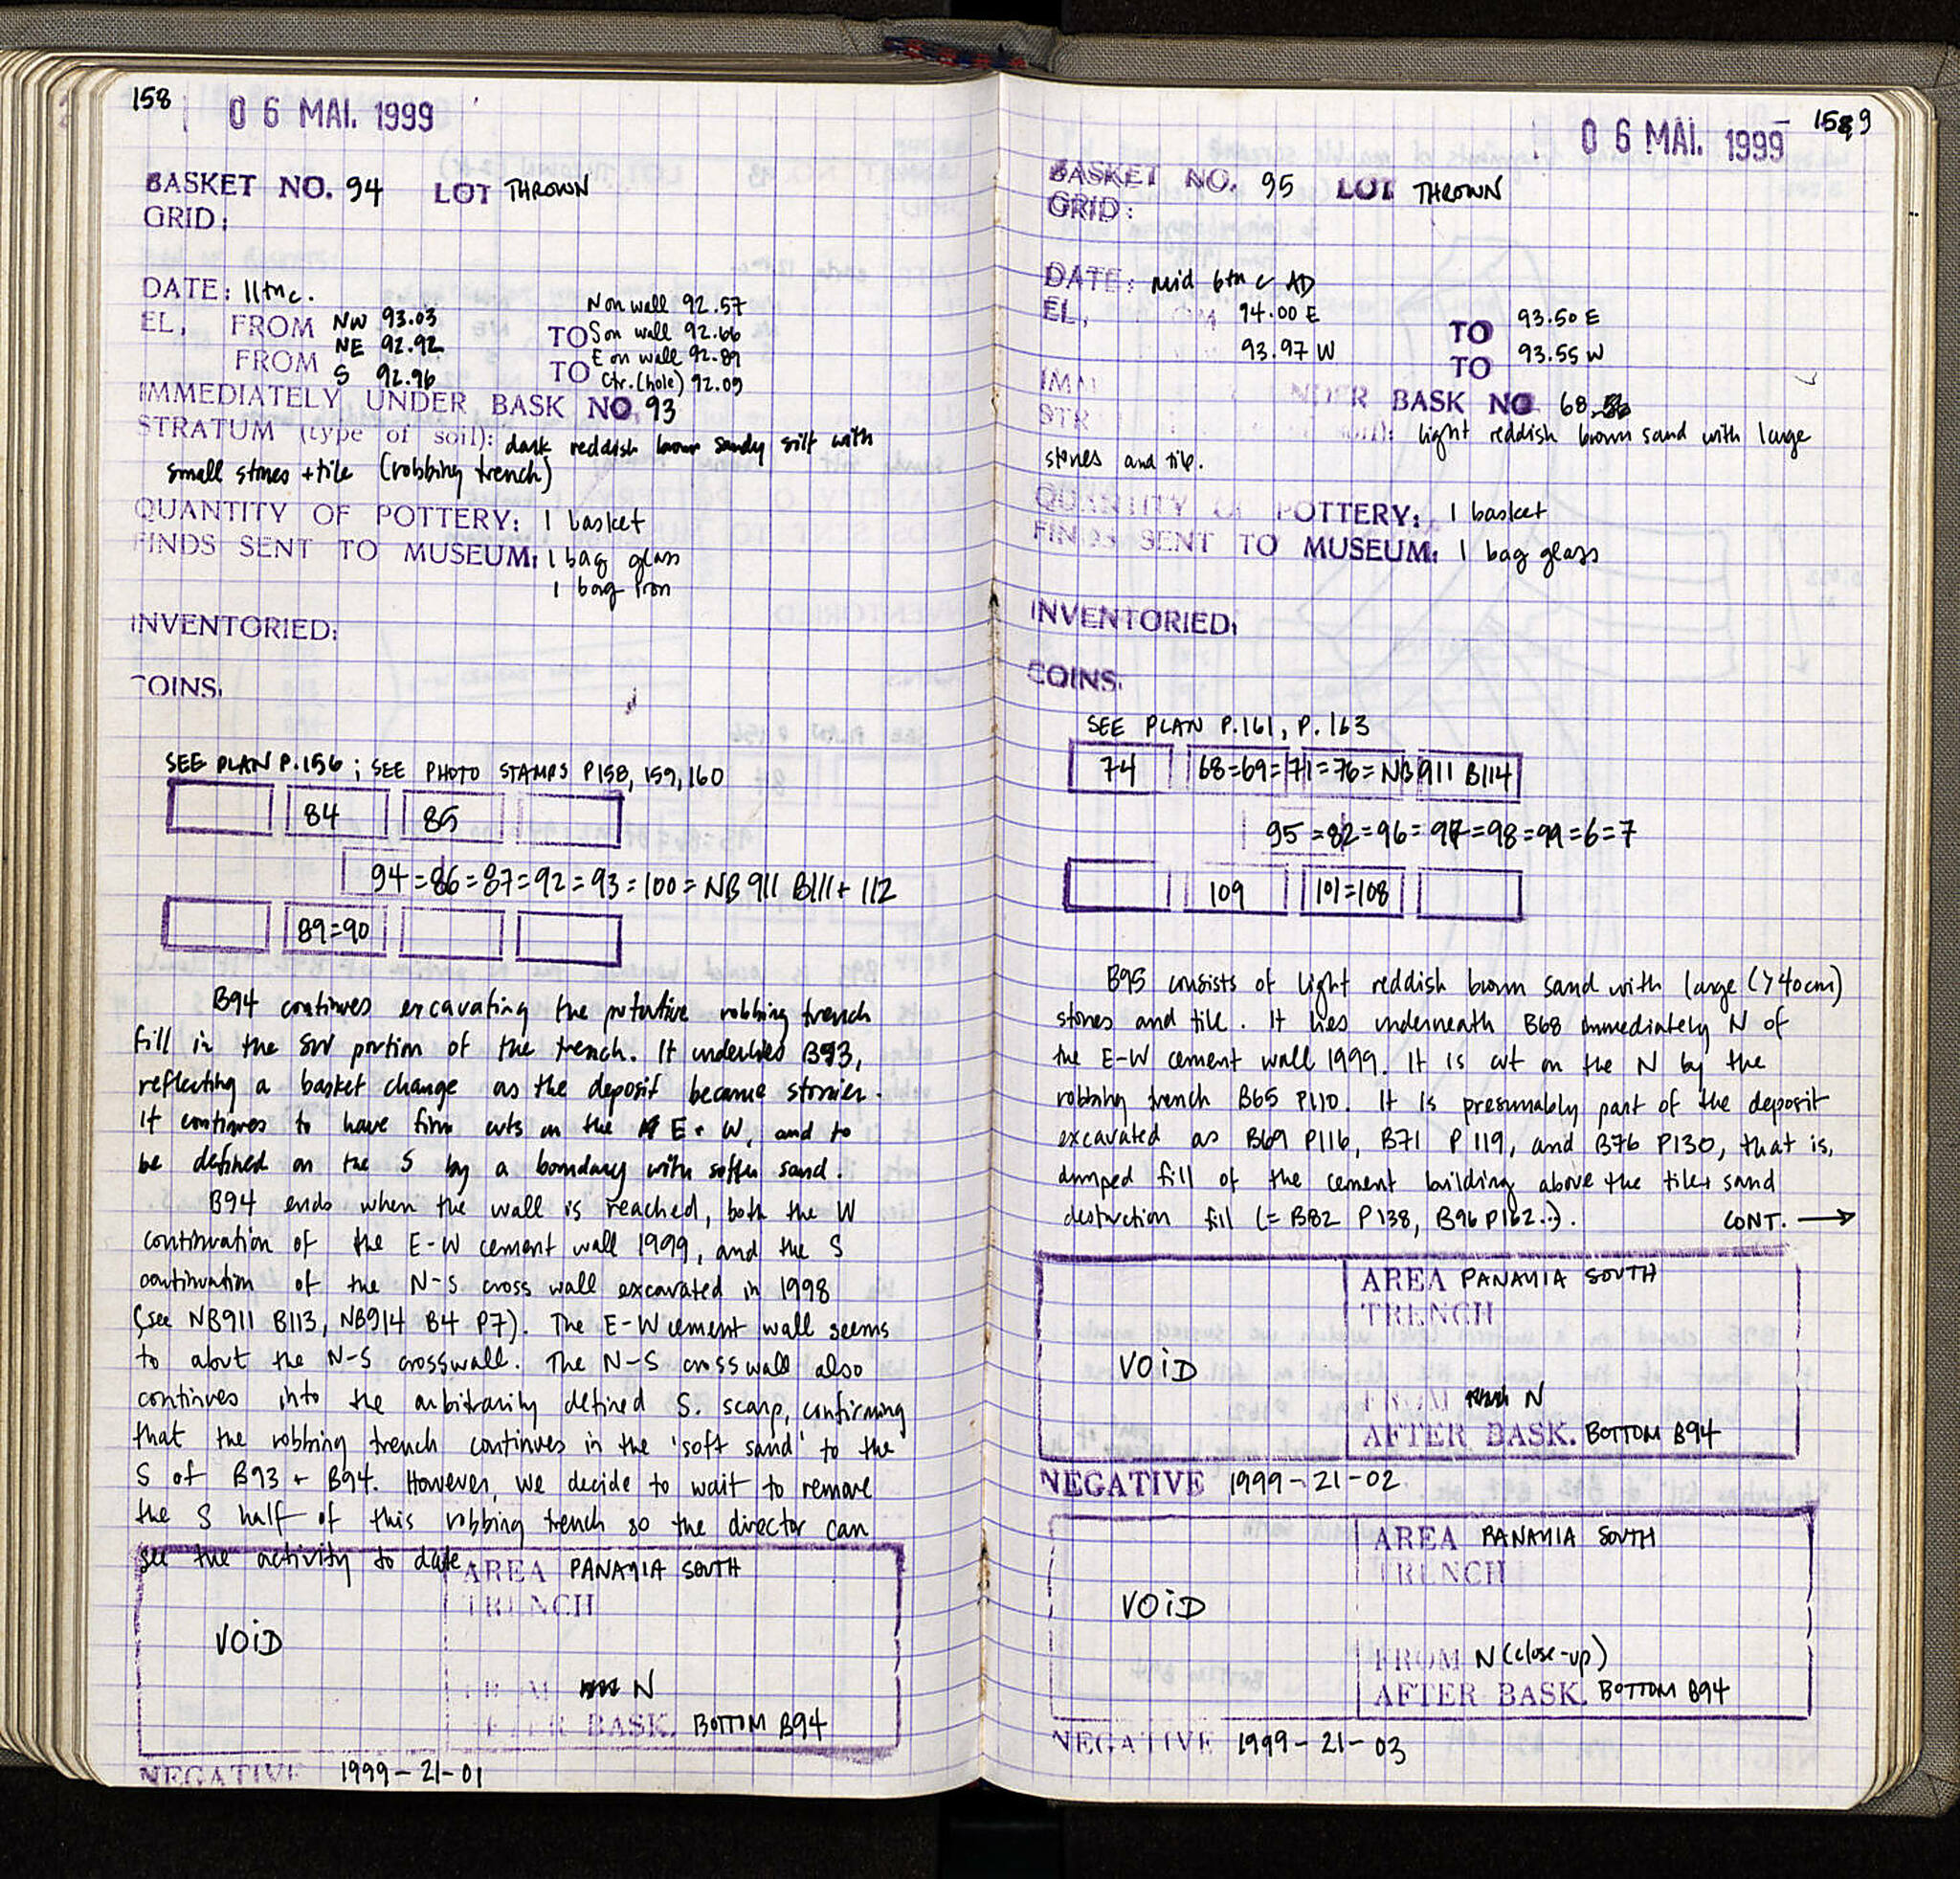 158
06 MAI. 1999
BASKET NO. 94 LOT THROWN
GRID:
DATE: 11th c.
EL, FROM NW 93.03 TO N on wall 92.57
NE 92.92 S on wall 92.66
FROM S 92.96 TO E on wall 92.89
Ctr. (hole) 92.09
IMMEDIATELY UNDER BASK NO. 93
STRATUM (type of soil): dark reddish brown sandy silt with
small stones + tile (robbing trench)
QUANTITY OF POTTERY: 1 basket
FINDS SENT TO MUSEUM: 1 bag glass
1 bag iron
INVENTORIED:
COINS.
SEE PLAN P.156 ; SEE PHOTO STAMPS P158, 159, 160
84 85
94 = 86 = 87 = 92 = 93 = 100 = NB 911 B111 + 112
89=90
B94 continues excavating the putative robbing trench
fill in the SW portion of the trench. It underlies B93,
reflecting a basket change as the deposit became stonier.
It continues to have firm cuts on the E + W, and to
be defined on the S by a boundary with softer sand.
B94 ends when the wall is reached, both the W
continuation of the E-W cement wall 1999, and the S
continuation of the N-S cross wall excavated in 1998
(see NB911 B113, NB914 B4 P7). The E-W cement wall seems
to abut the N-S crosswall. The N-S cross wall also
continues into the arbitrarily defined S. scarp, confirming
that the robbing trench continues in the 'soft sand' to the
S of B93 + B94. However, we decide to wait to remove
the S half of this robbing trench so the director can
see the activity to date
AREA PANAYIA SOUTH
TRENCH
VOID
FROM N
AFTER BASK. BOTTOM B94
NEGATIVE 1999-21-01
1589
06 MAI. 1999
BASKET NO. 95 LOT THROWN
GRID:
DATE: mid 6th c AD
EL, 94.00 E TO 93.50 E
93.97 W TO 93.55 W
IMM UNDER BASK NO 68
STR light reddish brown sand with large
stones and tile.
QUANTITY OF POTTERY: 1 basket
FINDS SENT TO MUSEUM: 1 bag glass
INVENTORIED:
COINS.
SEE PLAN P.161, P. 163
74 68=69=71=76=NB911 B114
95 = 82 = 96 = 97 = 98 = 99 = 6 = 7
109 101=108
B95 consists of light reddish brown sand with large (>40cm)
stones and tile. It lies underneath B68 immediately N of
the E-W cement wall 1999. It is cut on the N by the
robbing trench B65 P110. It is presumably part of the deposit
excavated as B69 P116, B71 P119, and B76 P130, that is,
dumped fill of the cement building above the tile + sand
destruction fill (= B82 P138, B96 P162..).
CONT. →
AREA PANAYIA SOUTH
TRENCH
VOID
FROM N
AFTER BASK. BOTTOM B94
NEGATIVE 1999-21-02
AREA PANAYIA SOUTH
TRENCH
VOID
FROM N (close-up)
AFTER BASK. BOTTOM B94
NEGATIVE 1999-21-03